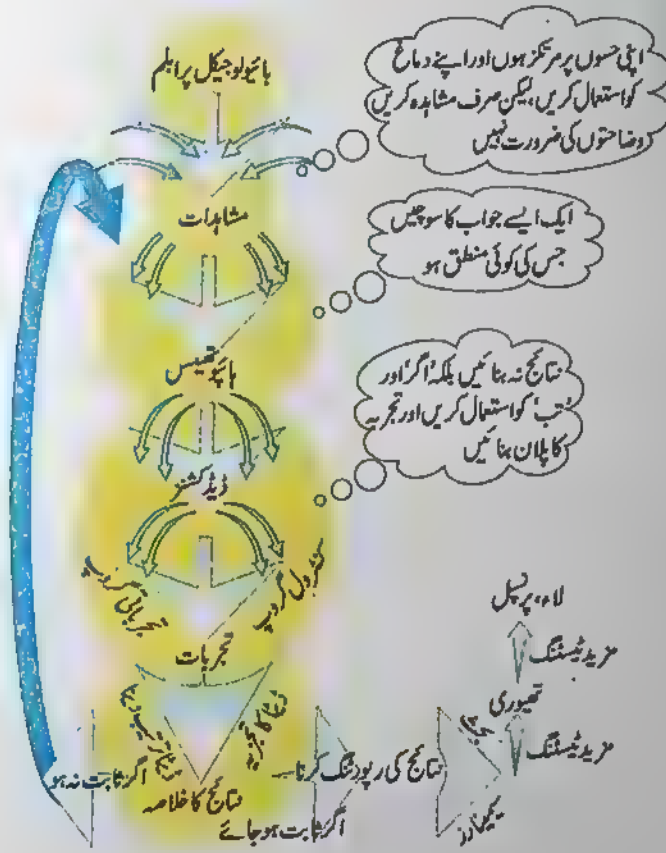 بائیولوجیکل پرابلم
اپنی حسوں پر مرتکز ہوں اور اپنے دماغ
کو استعمال کریں، لیکن صرف مشاہدہ کریں
وضاحتوں کی ضرورت نہیں
مشاہدات
ایک ایسے جواب کا سوچیں
جس کی کوئی منطق ہو
ہائپوتھیسس
نتائج نہ بنائیں بلکہ 'اگر' اور
'تب' کو استعمال کریں اور تجربہ
کا پلان بنائیں
ڈیڈکشنز
تجرباتی گروپ
کنٹرول گروپ
تجربات
لاء، پرنسپل
مزید ٹیسٹنگ
تھیوری
مزید ٹیسٹنگ
ڈیٹا کا تجزیہ
اگر ثابت نہ ہو
نتائج کا خلاصہ
اگر ثابت ہو جائے
نتائج کی رپورٹنگ کرنا